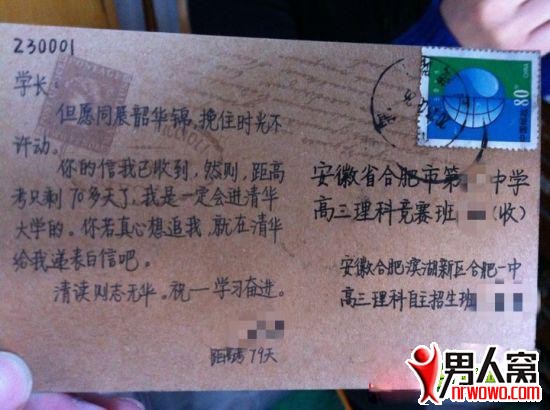 230001
学长:
但愿同展韶华锦,挽住时光不
许动。
你的信我已收到,然则,距高
考只剩70多天了,我是一定会进清华
大学的。你若真心想追我,就在清华
给我递表白信吧。
清读则志无华。祝一学习奋进。
距高考79天
80
安徽省合肥市第 中学
高三理科竞赛班 (收)
安徽合肥滨湖新区合肥一中
高三理科自主招生班
男人窝
nrwowo.com